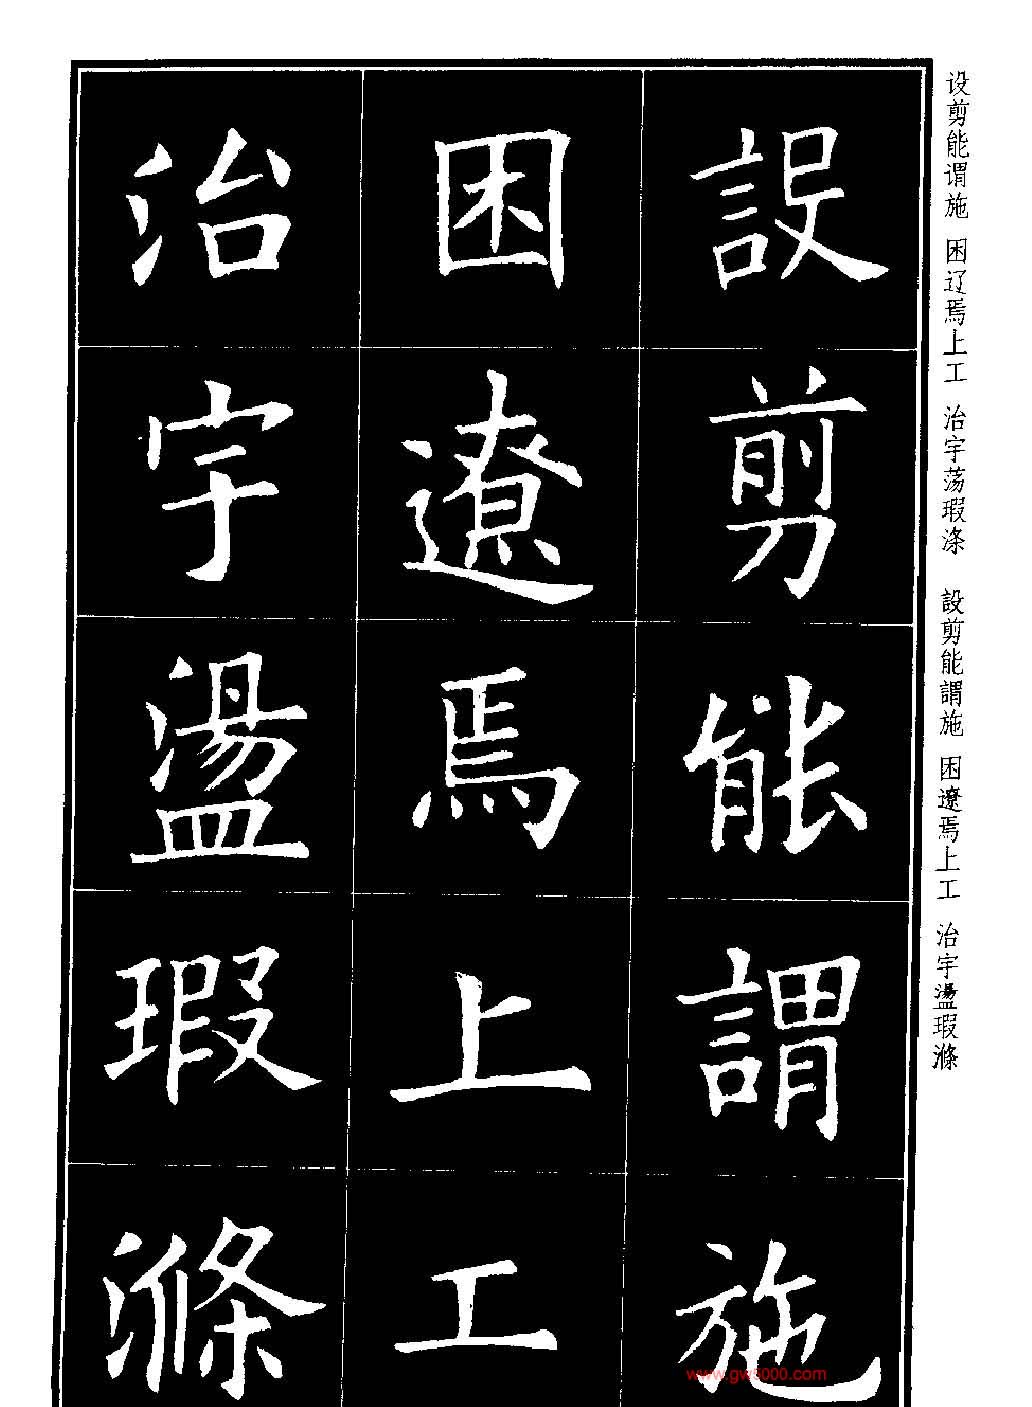 设剪能谓施 困辽焉上工 治宇荡瑕涤 設剪能謂施 困遼焉上工 治宇盪瑕滌
設剪能謂施
困遼焉上工
治宇盪瑕滌
www.gw5000.com